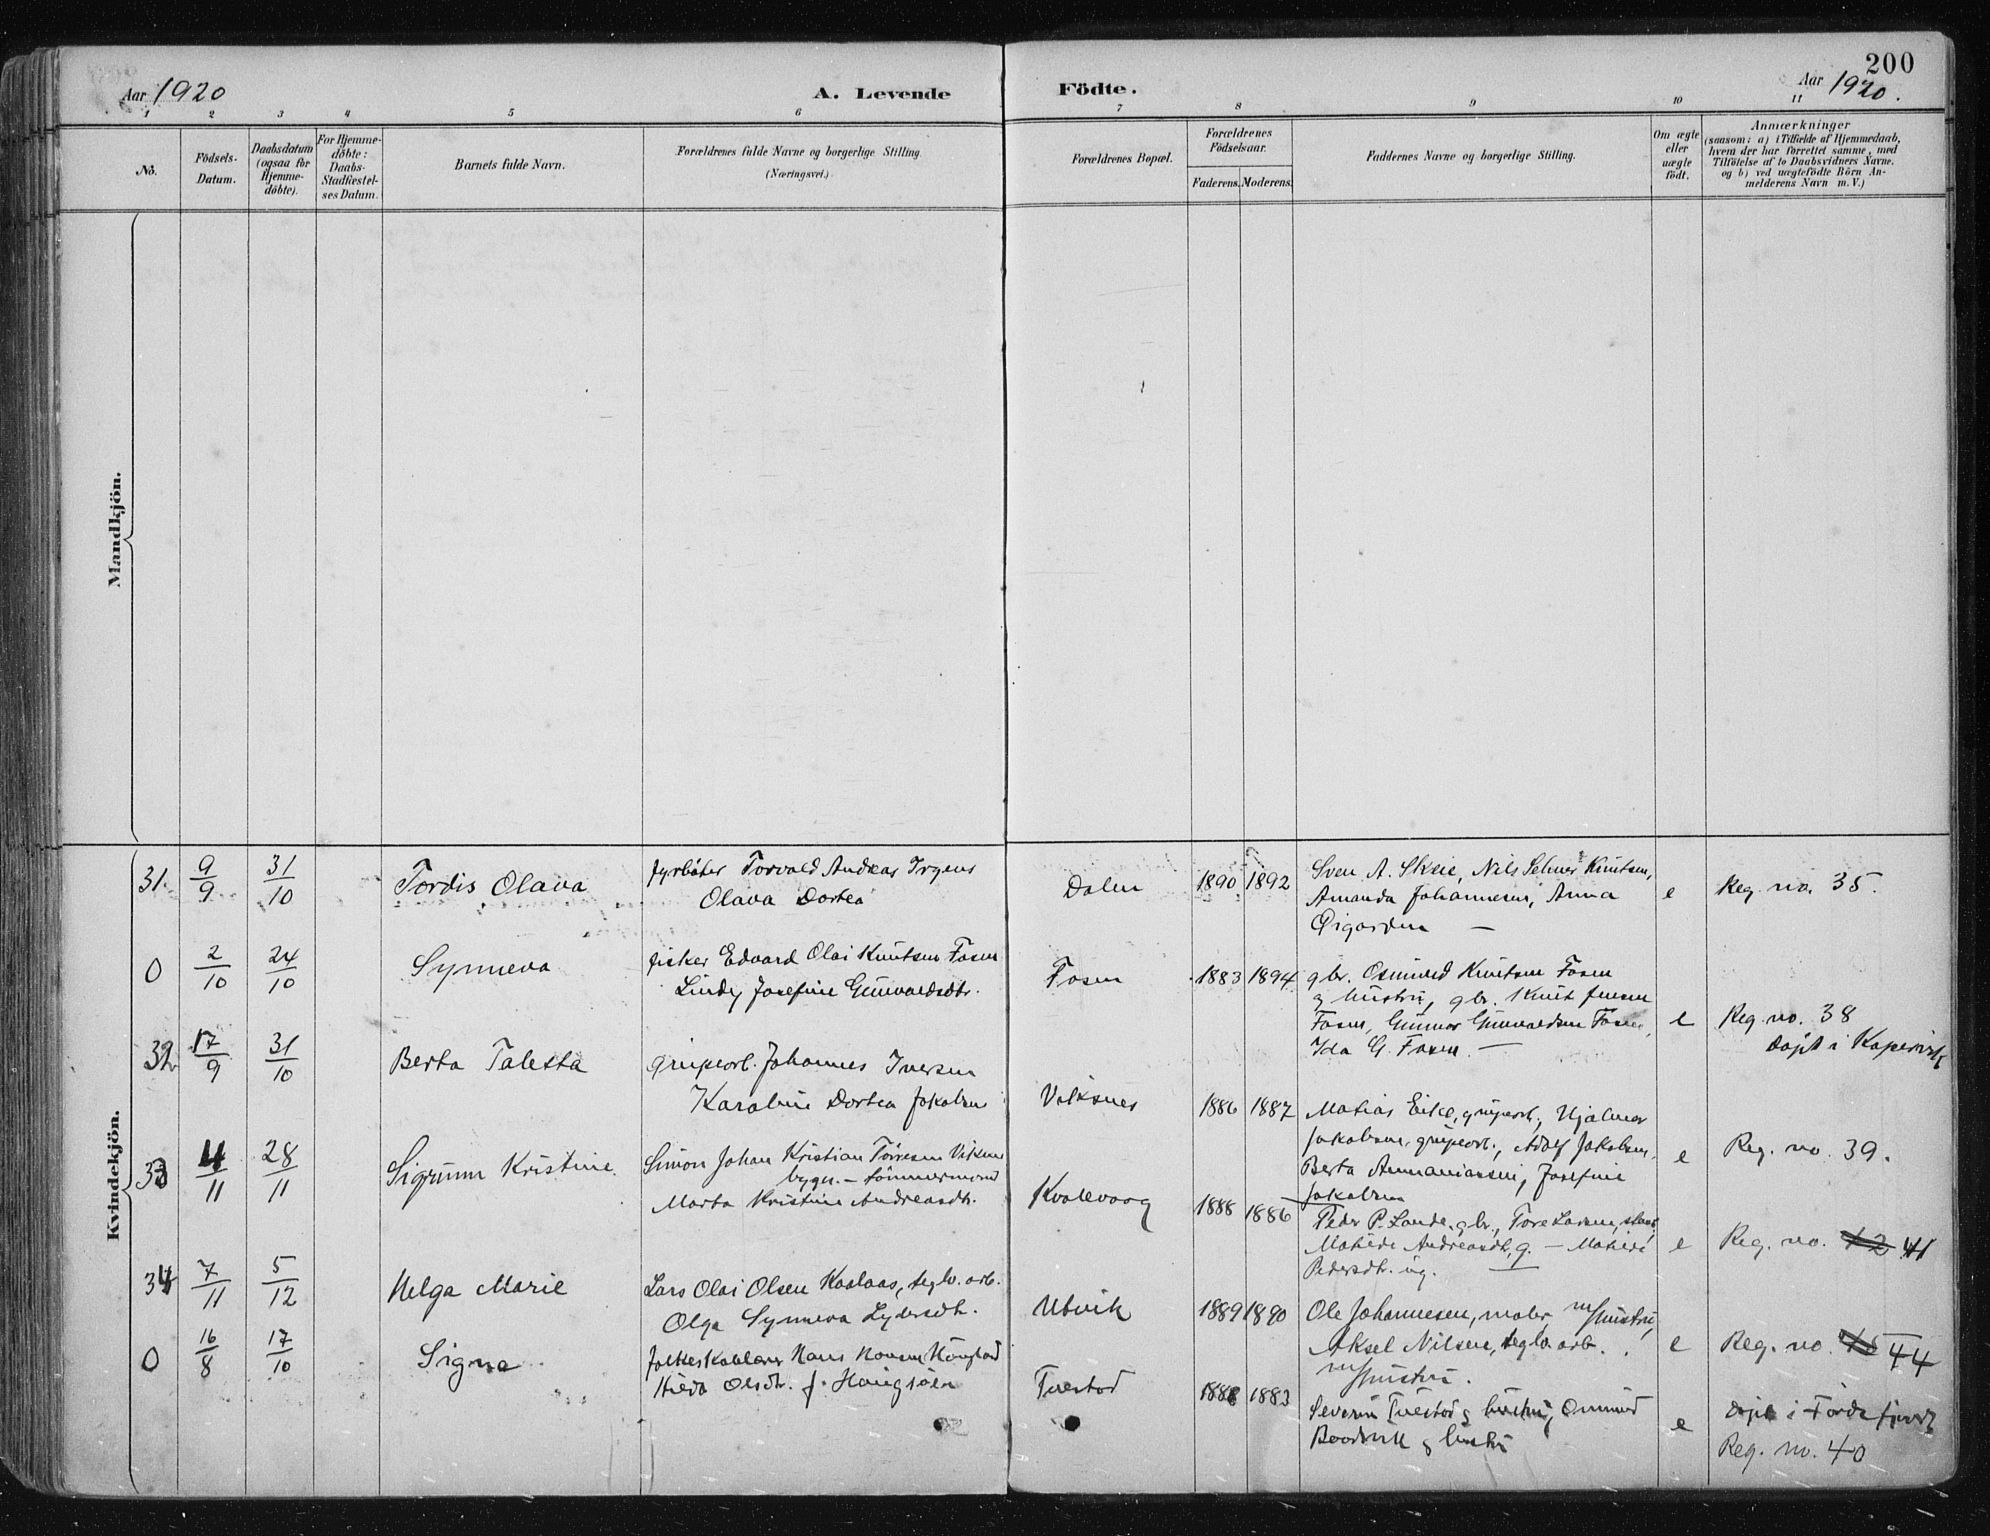 200
Aar 1920
A. Levende
Födte.
Aar 1920.
1 2 3 4 5 6 7 8 9 10 11
No.
Födsels-
Datum.
Daabsdatum
(ogsaa for
Hjemme-
döbte).
For Hjemme-
döbte:
Daabs-
Stadfæstel-
ses Datum.
Barnets fulde Navn.
Forældrenes fulde Navne og borgerlige Stilling.
(Næringsvei.)
Forældrenes Bopæl.
Forældrenes
Födselsaar.
Faderens. Moderens.
Faddernes Navne og borgerlige Stilling.
Om ægte
eller
uægte
födt.
Anmærkninger
(saasom: a) i Tilfælde af Hjemmedaab,
hvem der har forrettet samme, med
Tilföielse af to Daabsvidners Navne.
og b) ved uægtefödte Börn An-
melderens Navn m. V.)
Mandkjön.
Kvindekjön.
31. 9/9 31/10 Tordis Olava
fyrböter Torvald Andreas Irgens
Olava Dortea
Dalen 1890 1892
Sven A. Skeie, Nils Selmer Knutsen,
Amanda Johannesen, Anna
Øigarden —
e Reg. no. 35.
0 2/10 24/10 Synneva
fisker Edvard Olai Knutsen Fosen
Lindy Josefine Gunvaldsdtr.
Fosen 1883 1894
gbr. Osmund Knutsen Fosen
g hustru, gbr. Knut Jensen
Fosen, Gunnar Gunvaldsen Fosen,
Ida G. Fosen. —
e Reg. no. 38
døpt i Kopervik
32 17/9 31/10 Berta Talesta
grubearb. Johannes Iversen
Karoline Dortea Jakobsen
Viksnes 1886 1887
Matias Eike, grubearb., Hjalmar
Jakobsen, grubearb., Adolf Jakobsen,
Berta Annaniassen, Josefine
Jakobsen
e Reg. no. 39.
33 4/11 28/11 Sigrunn Kristine
Simon Johan Kristian Tørresen Viken
bygn. – tømmermand
Marta Kristine Andreasdtr.
Kvalevaag 1888 1886
Peder P. Lande, gbr., Tore Larsen,
Matilde Andreasdt. g. — Matilde
Pedersdtr. ug. —
e Reg. no. 42 41
34 7/11 5/12 Helga Marie
Lars Olai Olsen Kaalaas, teglv. arb.
Olga Synneva Lydersdtr.
Utvik 1889 1890
Ole Johannesen, maler, m/hustru,
Aksel Nilsen, teglv. arb.
m/hustru.
e Reg. no. 44
0 16/8 17/10 Signe
Hans Hansen
Hilda Olsdtr. f.
Tuestad 1883
Severin Tuestad g hustru, Osmund
g hustru
e døpt i Førdesfjord
Reg. no. 40